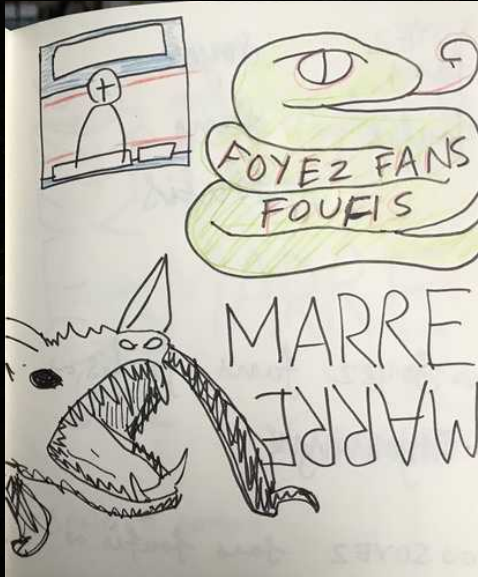 FOYEZ FANS
FOUFIS
MARRE
MARRE